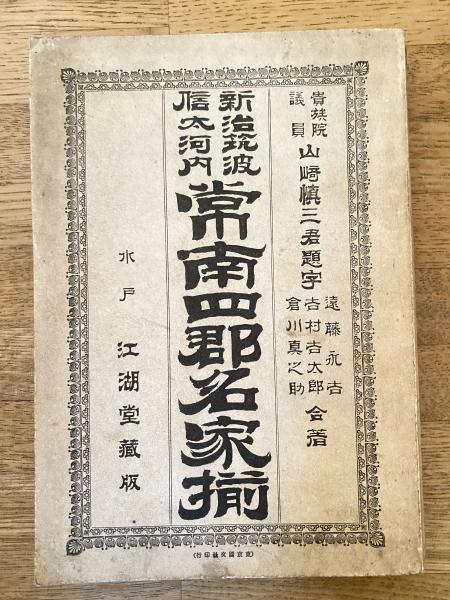 貴族院
議員
山崎慎三君題字
遠藤永吉
吉村吉太郎
倉川真之助
合著
新治筑波
信太河内
常南四郡名家揃
水戸 江湖堂藏版
(東京國文社印行)